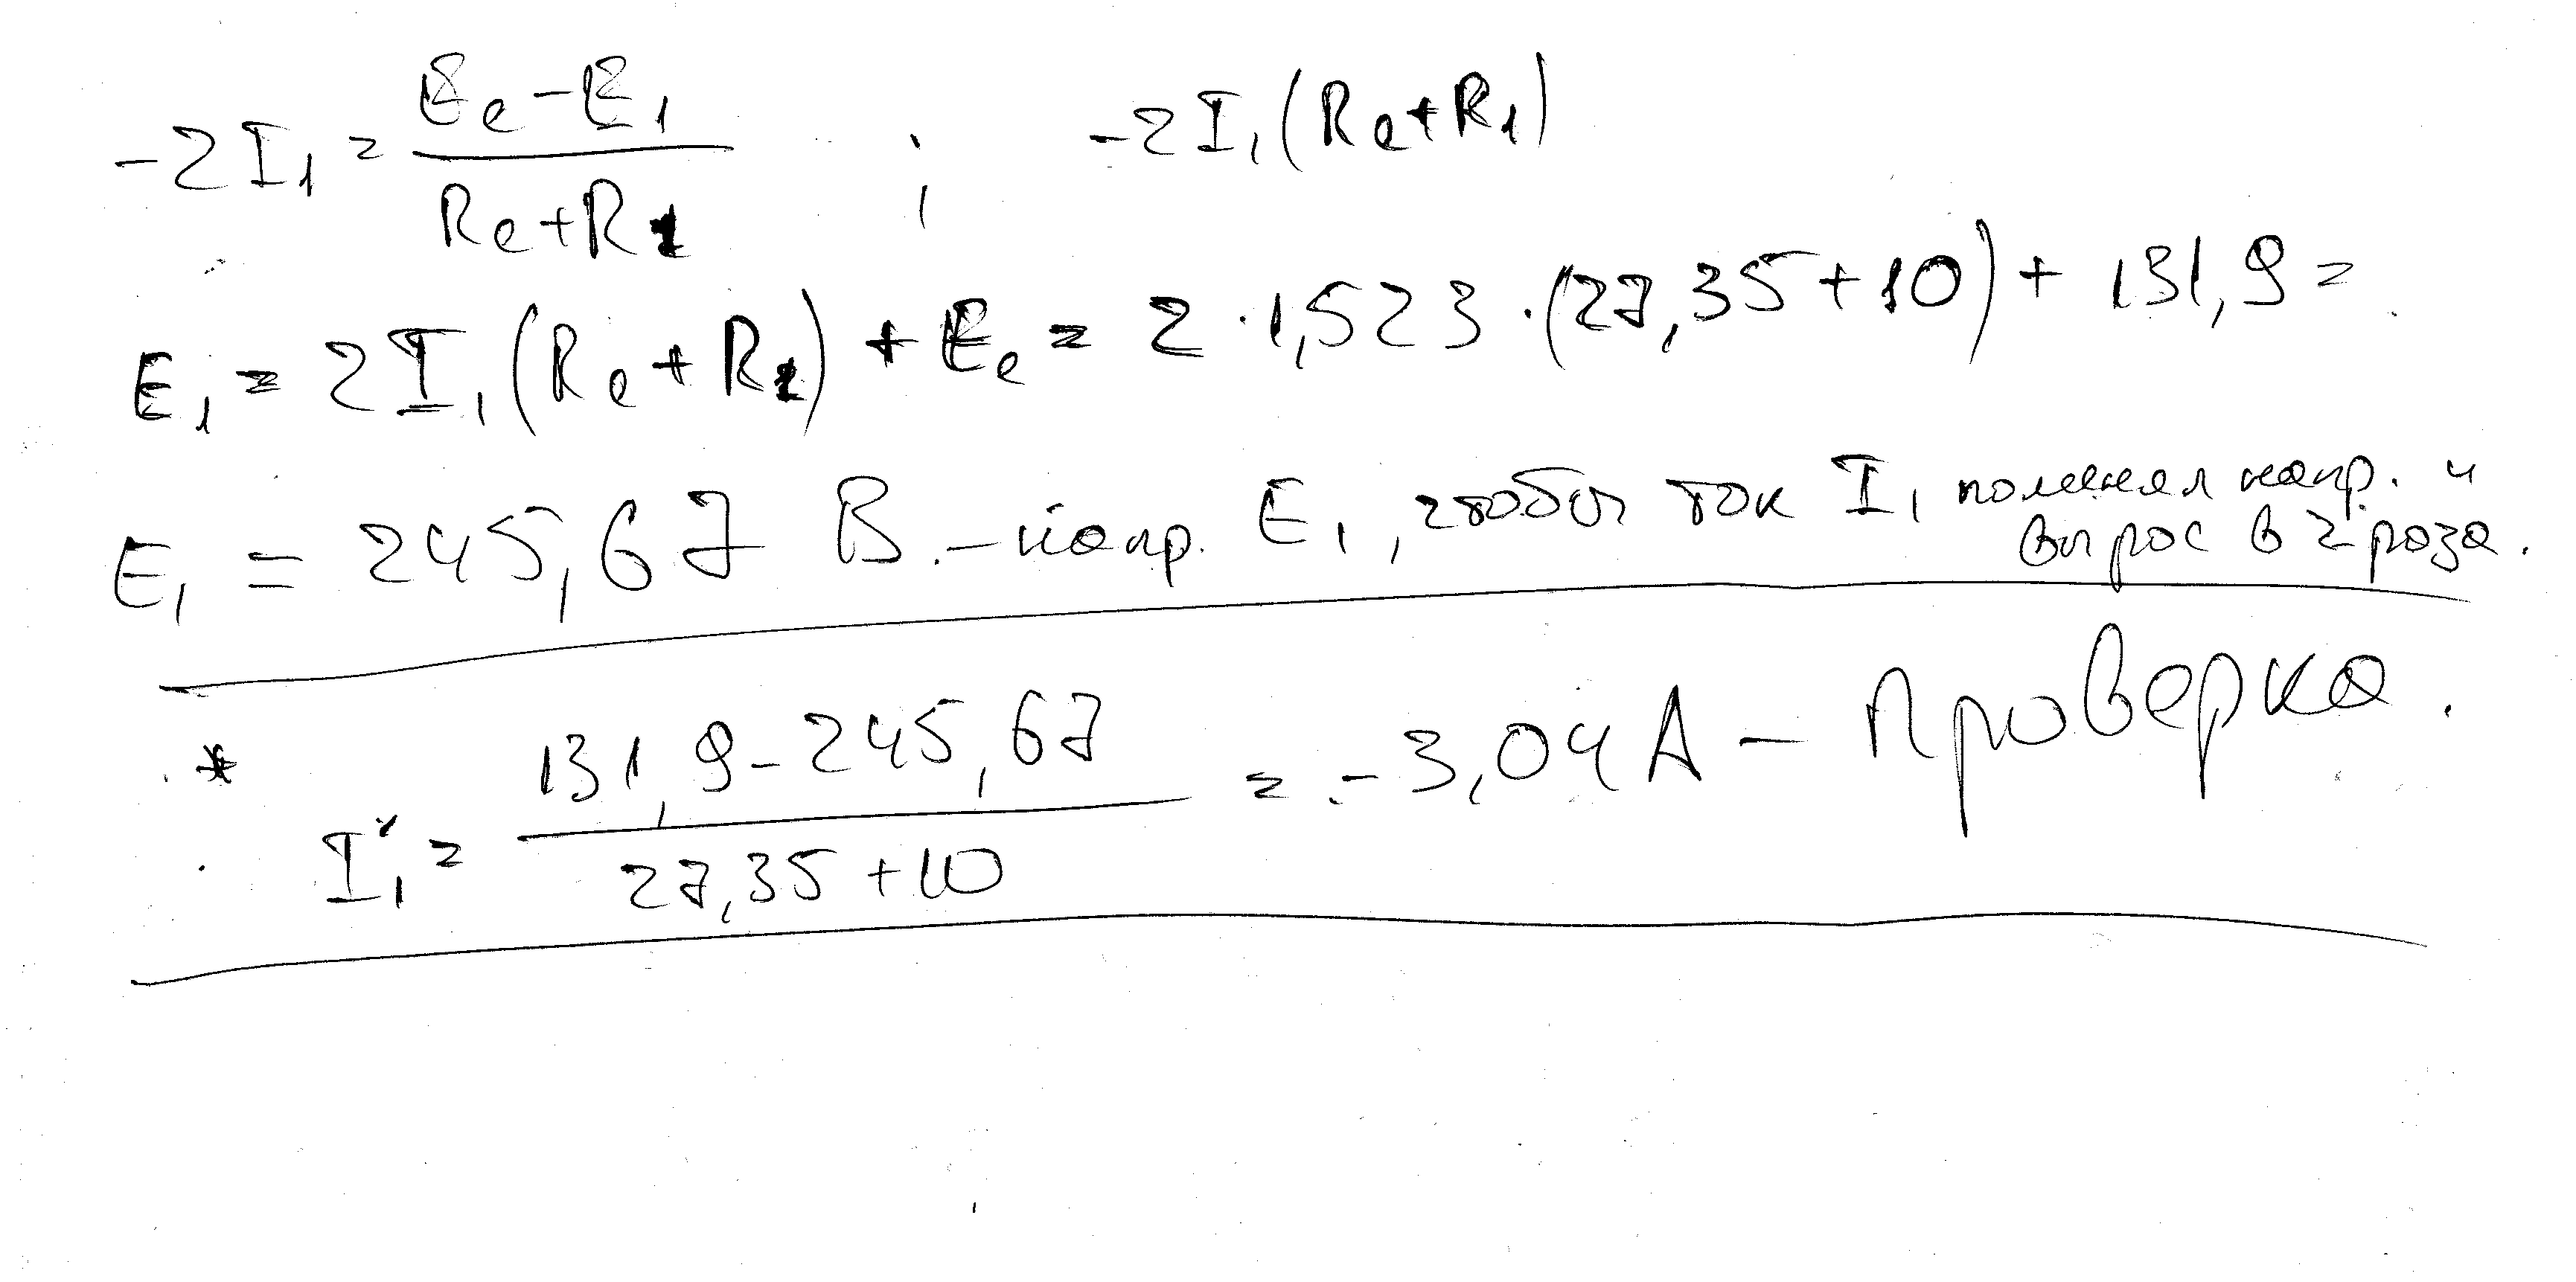 -2I₁ = (Ee - E₁) / (Re + R1) ; -2I₁(Re + R1)
E₁ = 2I₁(Re + R1) + Ee = 2 · 1,523 · (27,35 + 10) + 131,9 =
E₁ = 245,67 В. - напр. E₁, чтобы ток I₁ поменял напр. и вырос в 2 раза.
* I₁' = (131,9 - 245,67) / (27,35 + 10) = -3,04 А - Проверка.